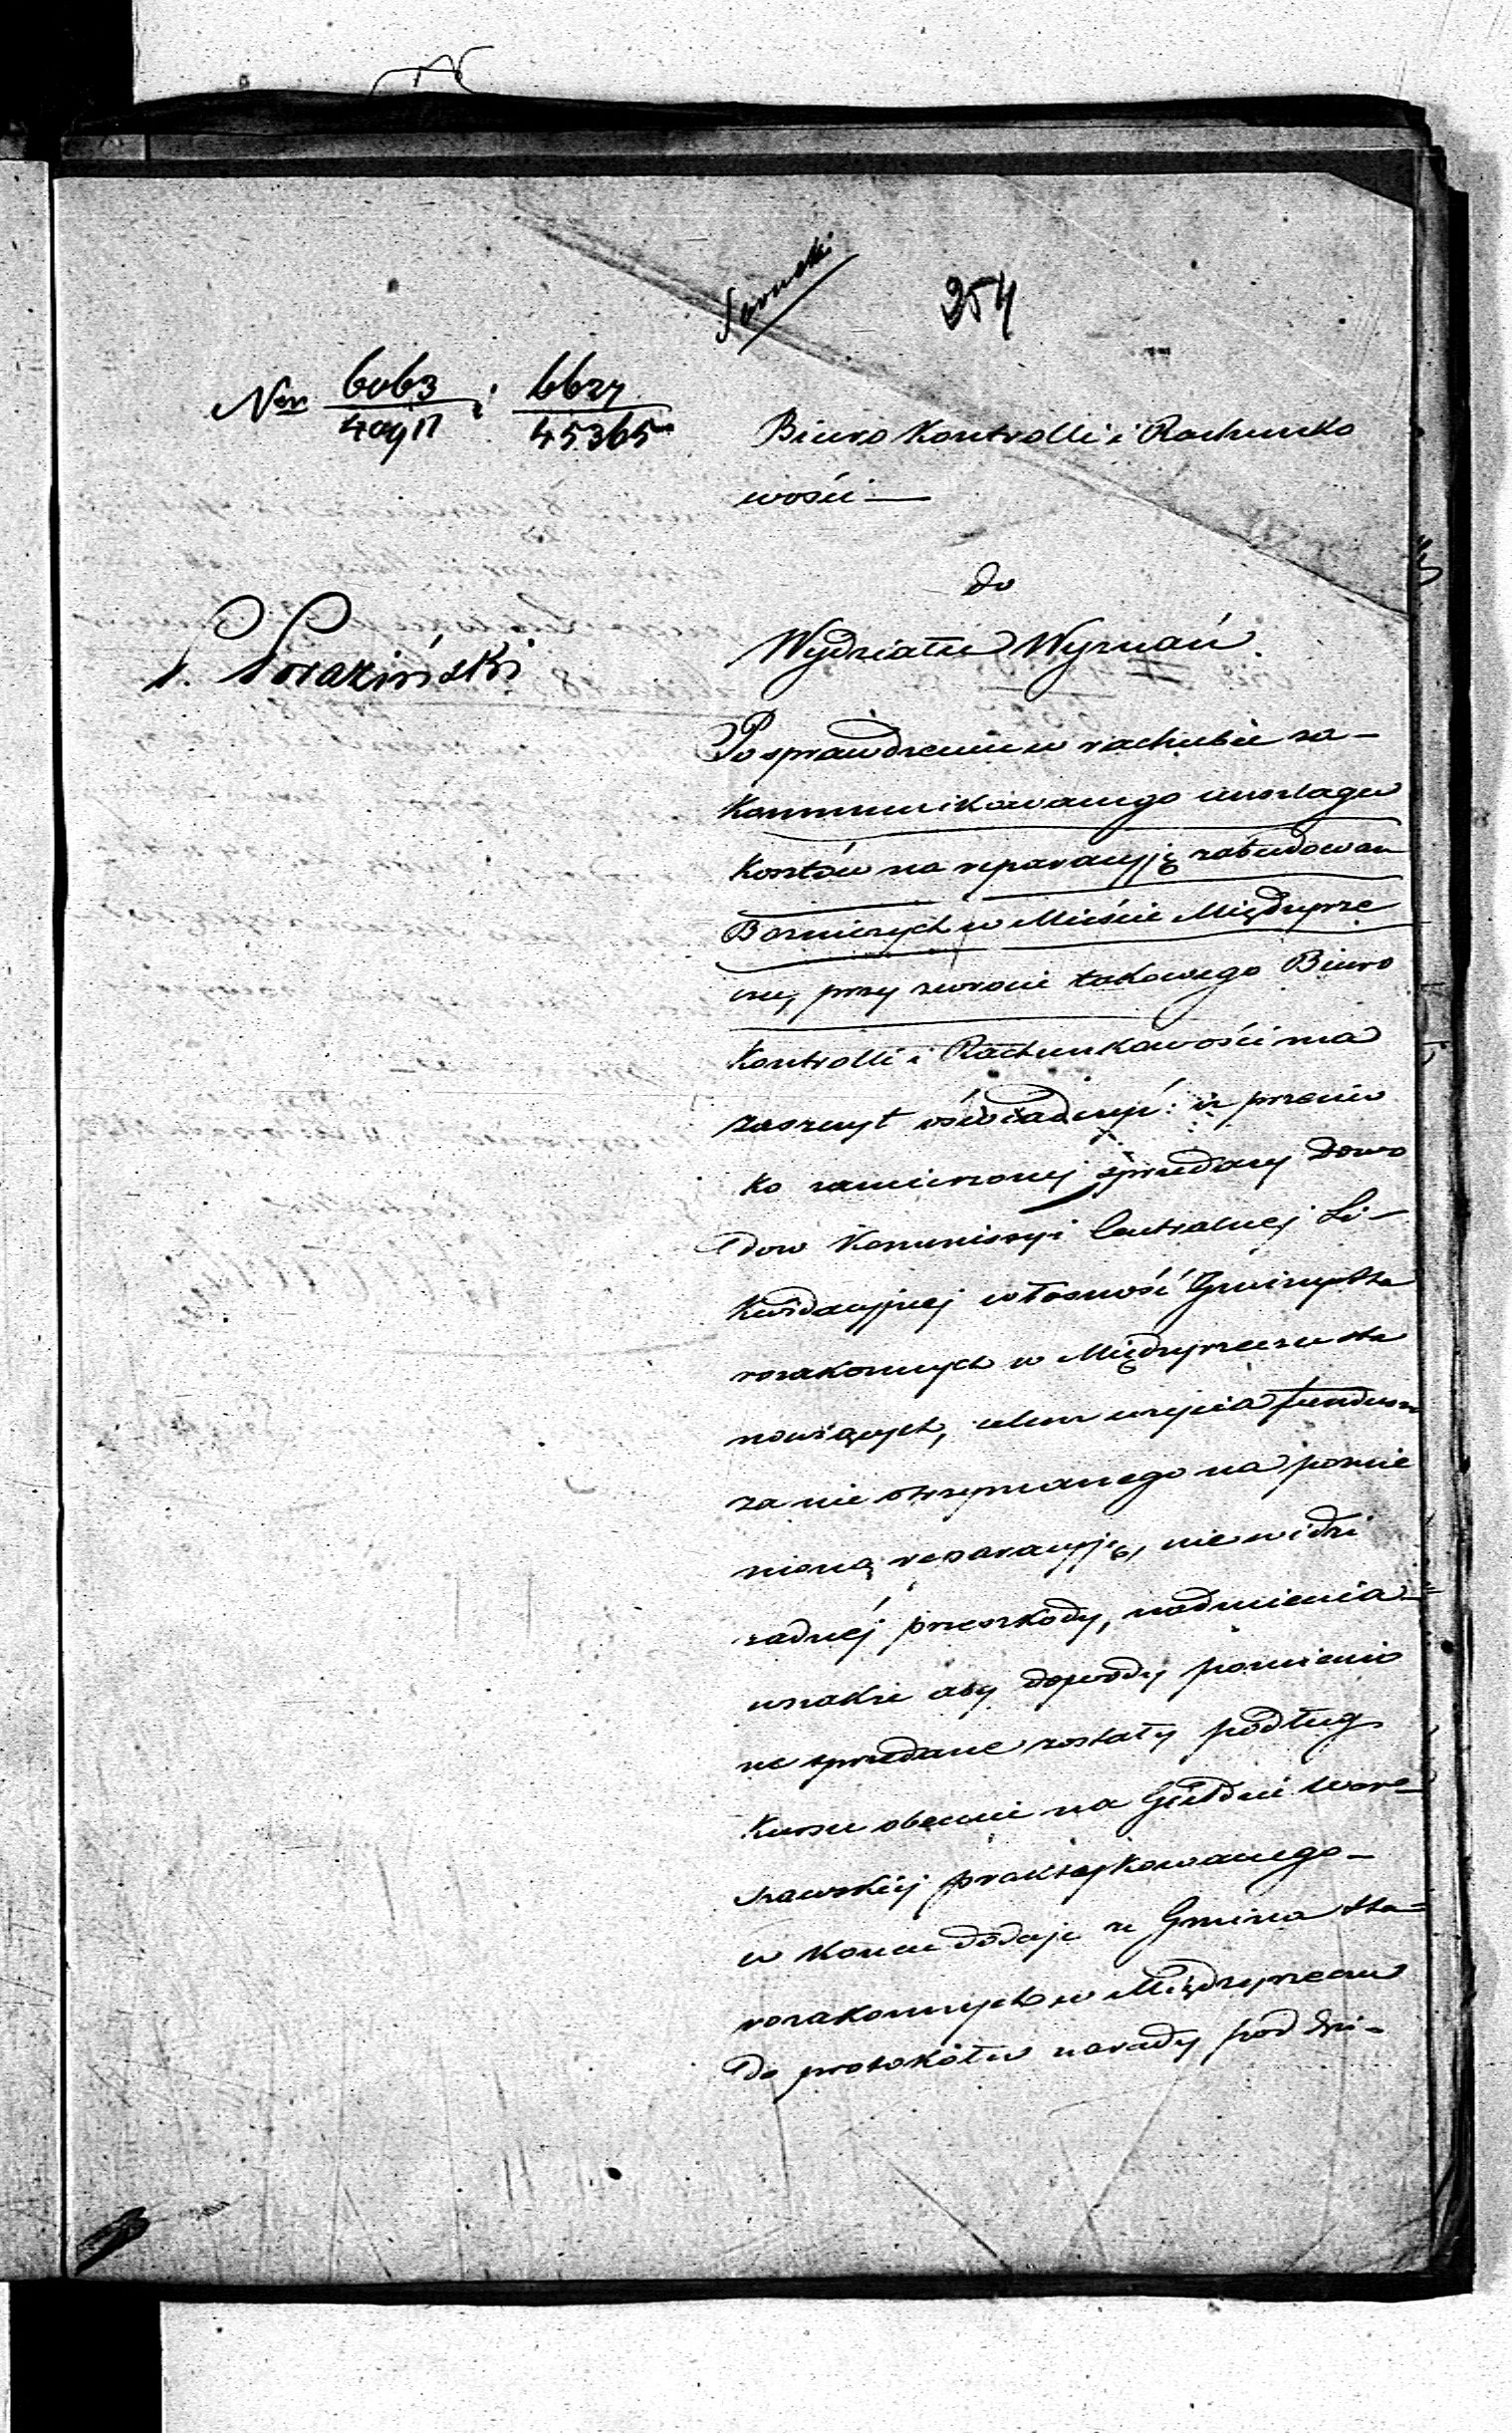 254
Nry 6063 : 6627
40917 45365
Biuro Kontrolli i Rachunko
wości —
do
Wydziału Wyznań.
P. Poraziński
Po sprawdzeniu w rachubie za-
kommunikowanego anszlagu
kosztów na reparacyję zabudowań
Bożniczych w Mieście Międzyrze
czu, przy zwrocie takowego Biuro
Kontrolli i Rachunkowości ma
zaszczyt oświadczyć: iż przeciw
ko zamierzonej sprzedaży Dowo
dow Kommissyi Centralnej Li-
kwidacyjnej własność Gminy Sta
rozakonnych w Międzyrzeczu sta
nowiących, celem użycia fundusz
za nie otrzymanego na pomie
nioną reparacyję, nie widzi
żadnéj przeszkody, nadmienia=
wszakże aby dowody pomienio
ne sprzedane zostały podług
Kursu obecnie na Giełdzie War-
szawskiej praktykowanego-
w końcu dodaje że Gmina Sta=
rozakonnych w Międzyrzeczu
do protokółu narady pod dni-